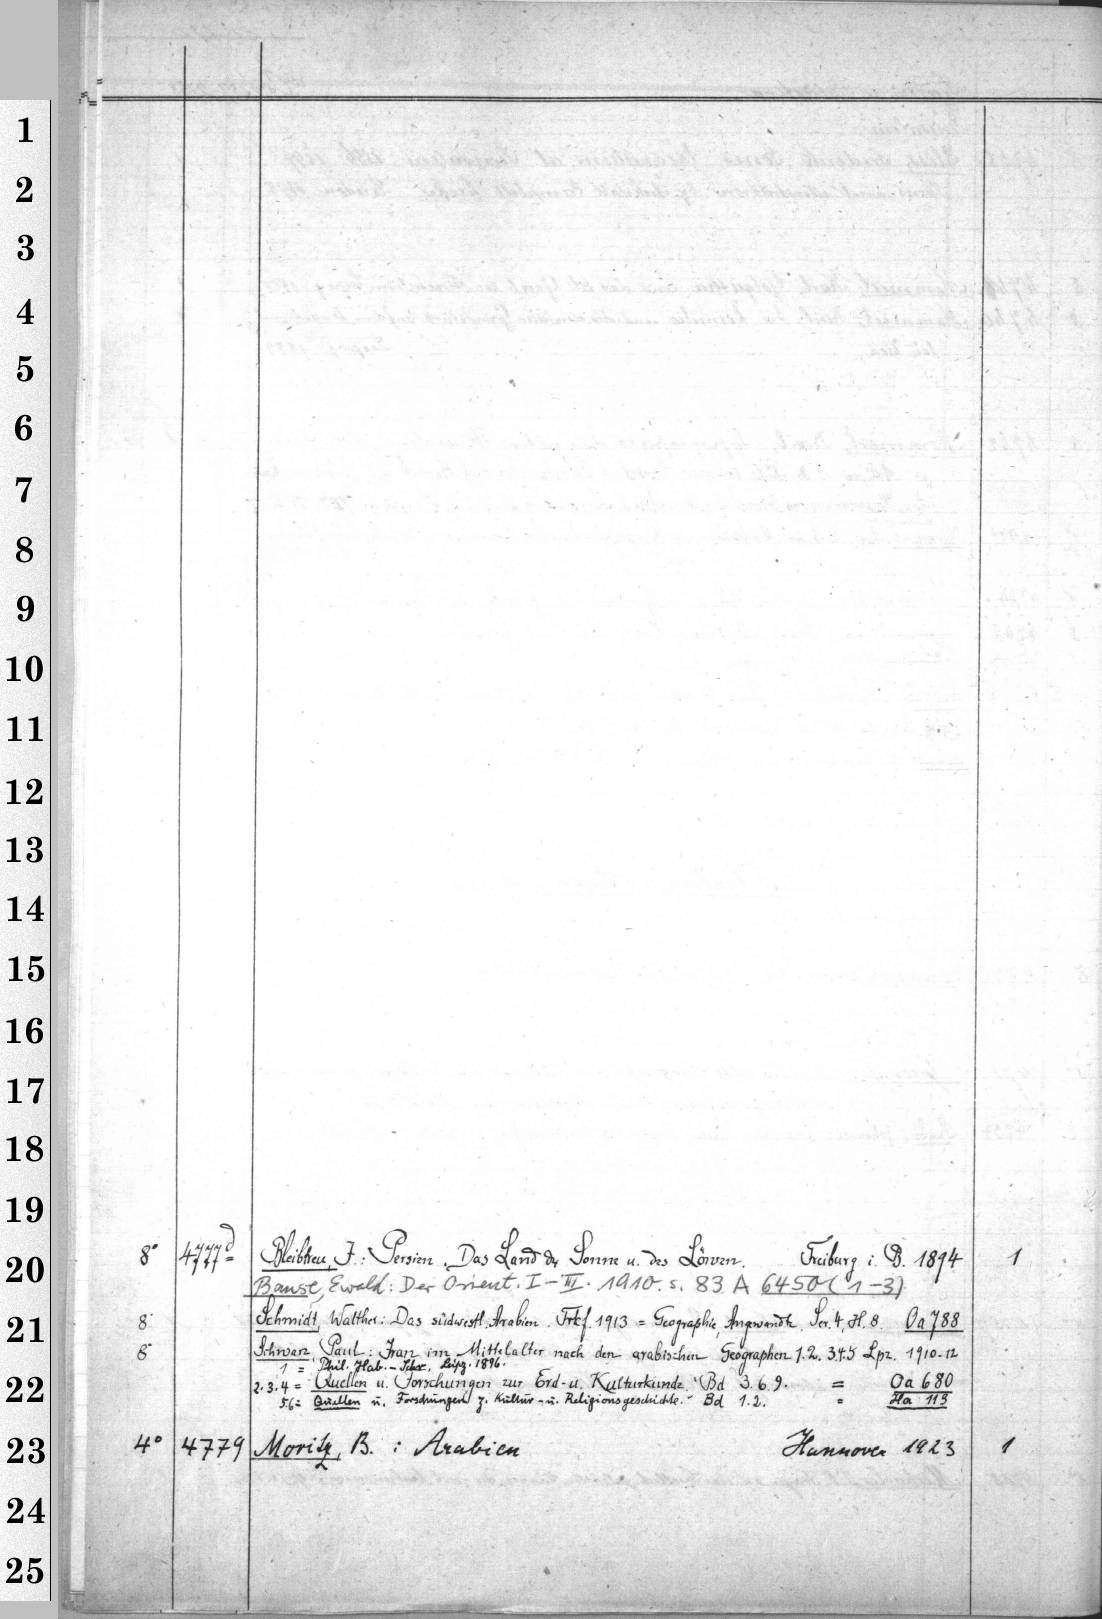 1
2
3
4
5
6
7
8
9
10
11
12
13
14
15
16
17
18
19
20
21
22
23
24
25
8° 4777d Bleibtreu, J.: Persien. Das Land der Sonne u. des Löwen. Freiburg i. B. 1894 1
Banse, Ewald: Der Orient. I-III. 1910. s. 83 A 6450 (1-3)
8 Schmidt, Walther: Das südwestl. Arabien. Frkf. 1913 = Geographie, Angewandte. Ser. 4, H. 8. Oa 788
8 Schwarz, Paul: Iran im Mittelalter nach den arabischen Geographen 1.2.3.4.5 Lpz. 1910-12
1 = Phil. Hab.-Schr., Leipz. 1896.
2.3.4 = Quellen u. Forschungen zur Erd- u. Kulturkunde." Bd 3.6.9. = Oa 680
5.6 = Quellen u. Forschungen z. Kultur- u. Religionsgeschichte." Bd 1.2. = Ha 113
4° 4779 Moritz, B.: Arabien Hannover 1923 1